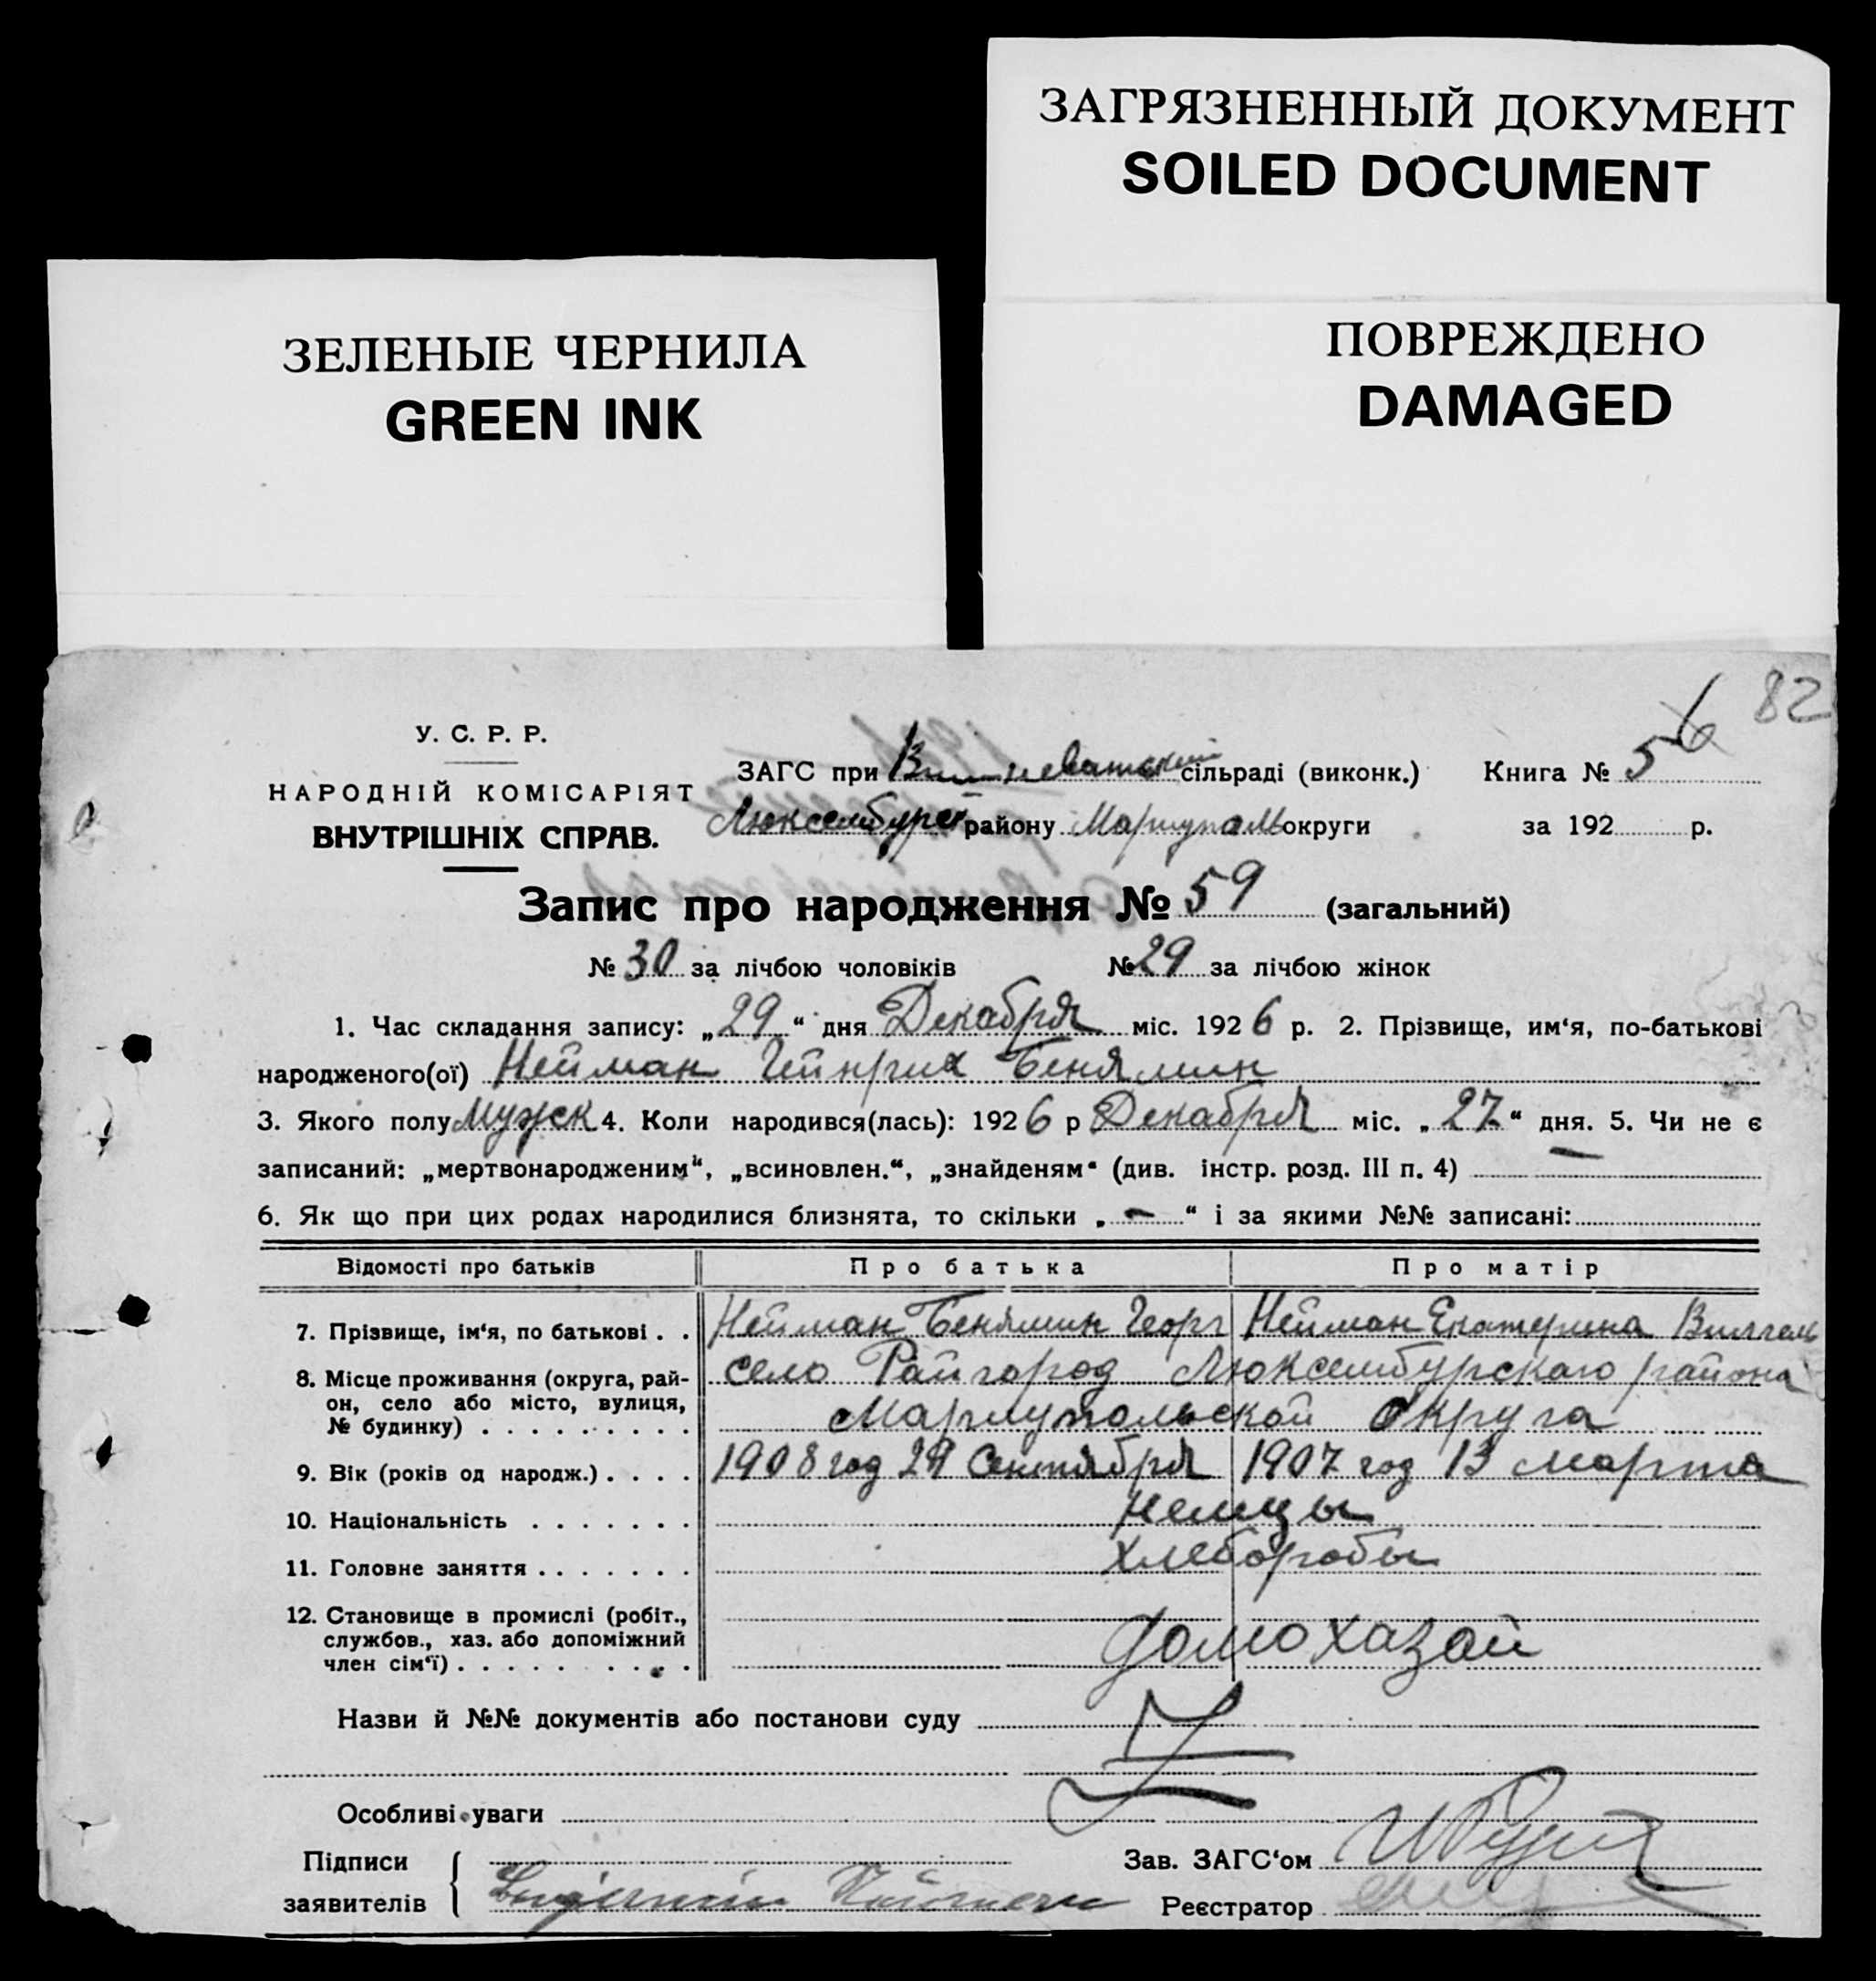 ЗАГРЯЗНЕННЫЙ ДОКУМЕНТ
SOILED DOCUMENT
ЗЕЛЕНЫЕ ЧЕРНИЛА
GREEN INK
ПОВРЕЖДЕНО
DAMAGED
82
У. С. Р. Р.
НАРОДНІЙ КОМІСАРІЯТ
ВНУТРІШНІХ СПРАВ.
ЗАГС при сільраді (виконк.) Книга № 5 6
Люксембургс району Мариупольокруги за 192 р.
Запис про народження № 59 (загальний)
№ 30 за лічбою чоловіків № 29 за лічбою жінок
1. Час складання запису: „29“ дня Декабря міс. 1926 р. 2. Прізвище, им‘я, по-батькові
народженого(ої) Нейман Гейнрих Бенямин
3. Якого полу мужск 4. Коли народився(лась): 1926 р Декабря міс. „27“ дня. 5. Чи не є
записаний: „мертвонародженим“, „всиновлен.“, „знайденям“ (див. інстр. розд. III п. 4) —
6. Як що при цих родах народилися близнята, то скільки „—“ і за якими №№ записані:
Відомості про батьків Про батька Про матір
7. Прізвище, ім‘я, по батькові . . Нейман Бенямин Георг Нейман Екатерина Вилгель
8. Місце проживання (округа, рай- село Райгород Люксембурскаго района
он, село або місто, вулиця,
№ будинку) . . . . . . . . . Мариупольской округа
9. Вік (років од народж.) . . . . 1908 год 29 Сентября 1907 год 13 марта
10. Національність . . . . . . . немцы
11. Головне заняття . . . . . . . хлеборобы
12. Становище в промислі (робіт.,
службов., хаз. або допоміжний домохазай
член сім‘ї) . . . . . . . . . .
Назви й №№ документів або постанови суду
Особливі уваги
Підписи Зав. ЗАГС‘ом
заявителів Реєстратор